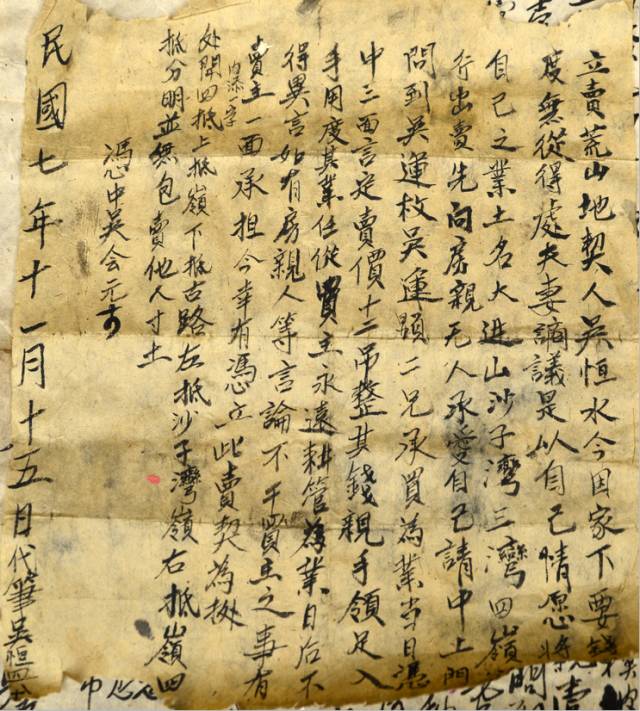 立賣荒山地契人吳恒水今因家下要錢
度無從得處夫妻謪議是以自己情愿將
自己之業土名大进山沙子灣三灣四嶺
行出賣先向房親无人承受自己請中上門
問到吳運枚吳運顕二兄承買為業當日憑
中三面言定賣價十二吊整其錢親手領足入
手用度其業任從買主永遠耕管為業日后不
得異言如有房親人等言論不干買主之事有
賣主一面承担今幸有憑立此賣契為挶
内添一字
处開四抵上抵嶺下抵古路左抵沙子灣嶺右抵嶺四
抵分明並無包賣他人寸土
馮心中吳会元
民國七年十一月十五日代筆吳恒